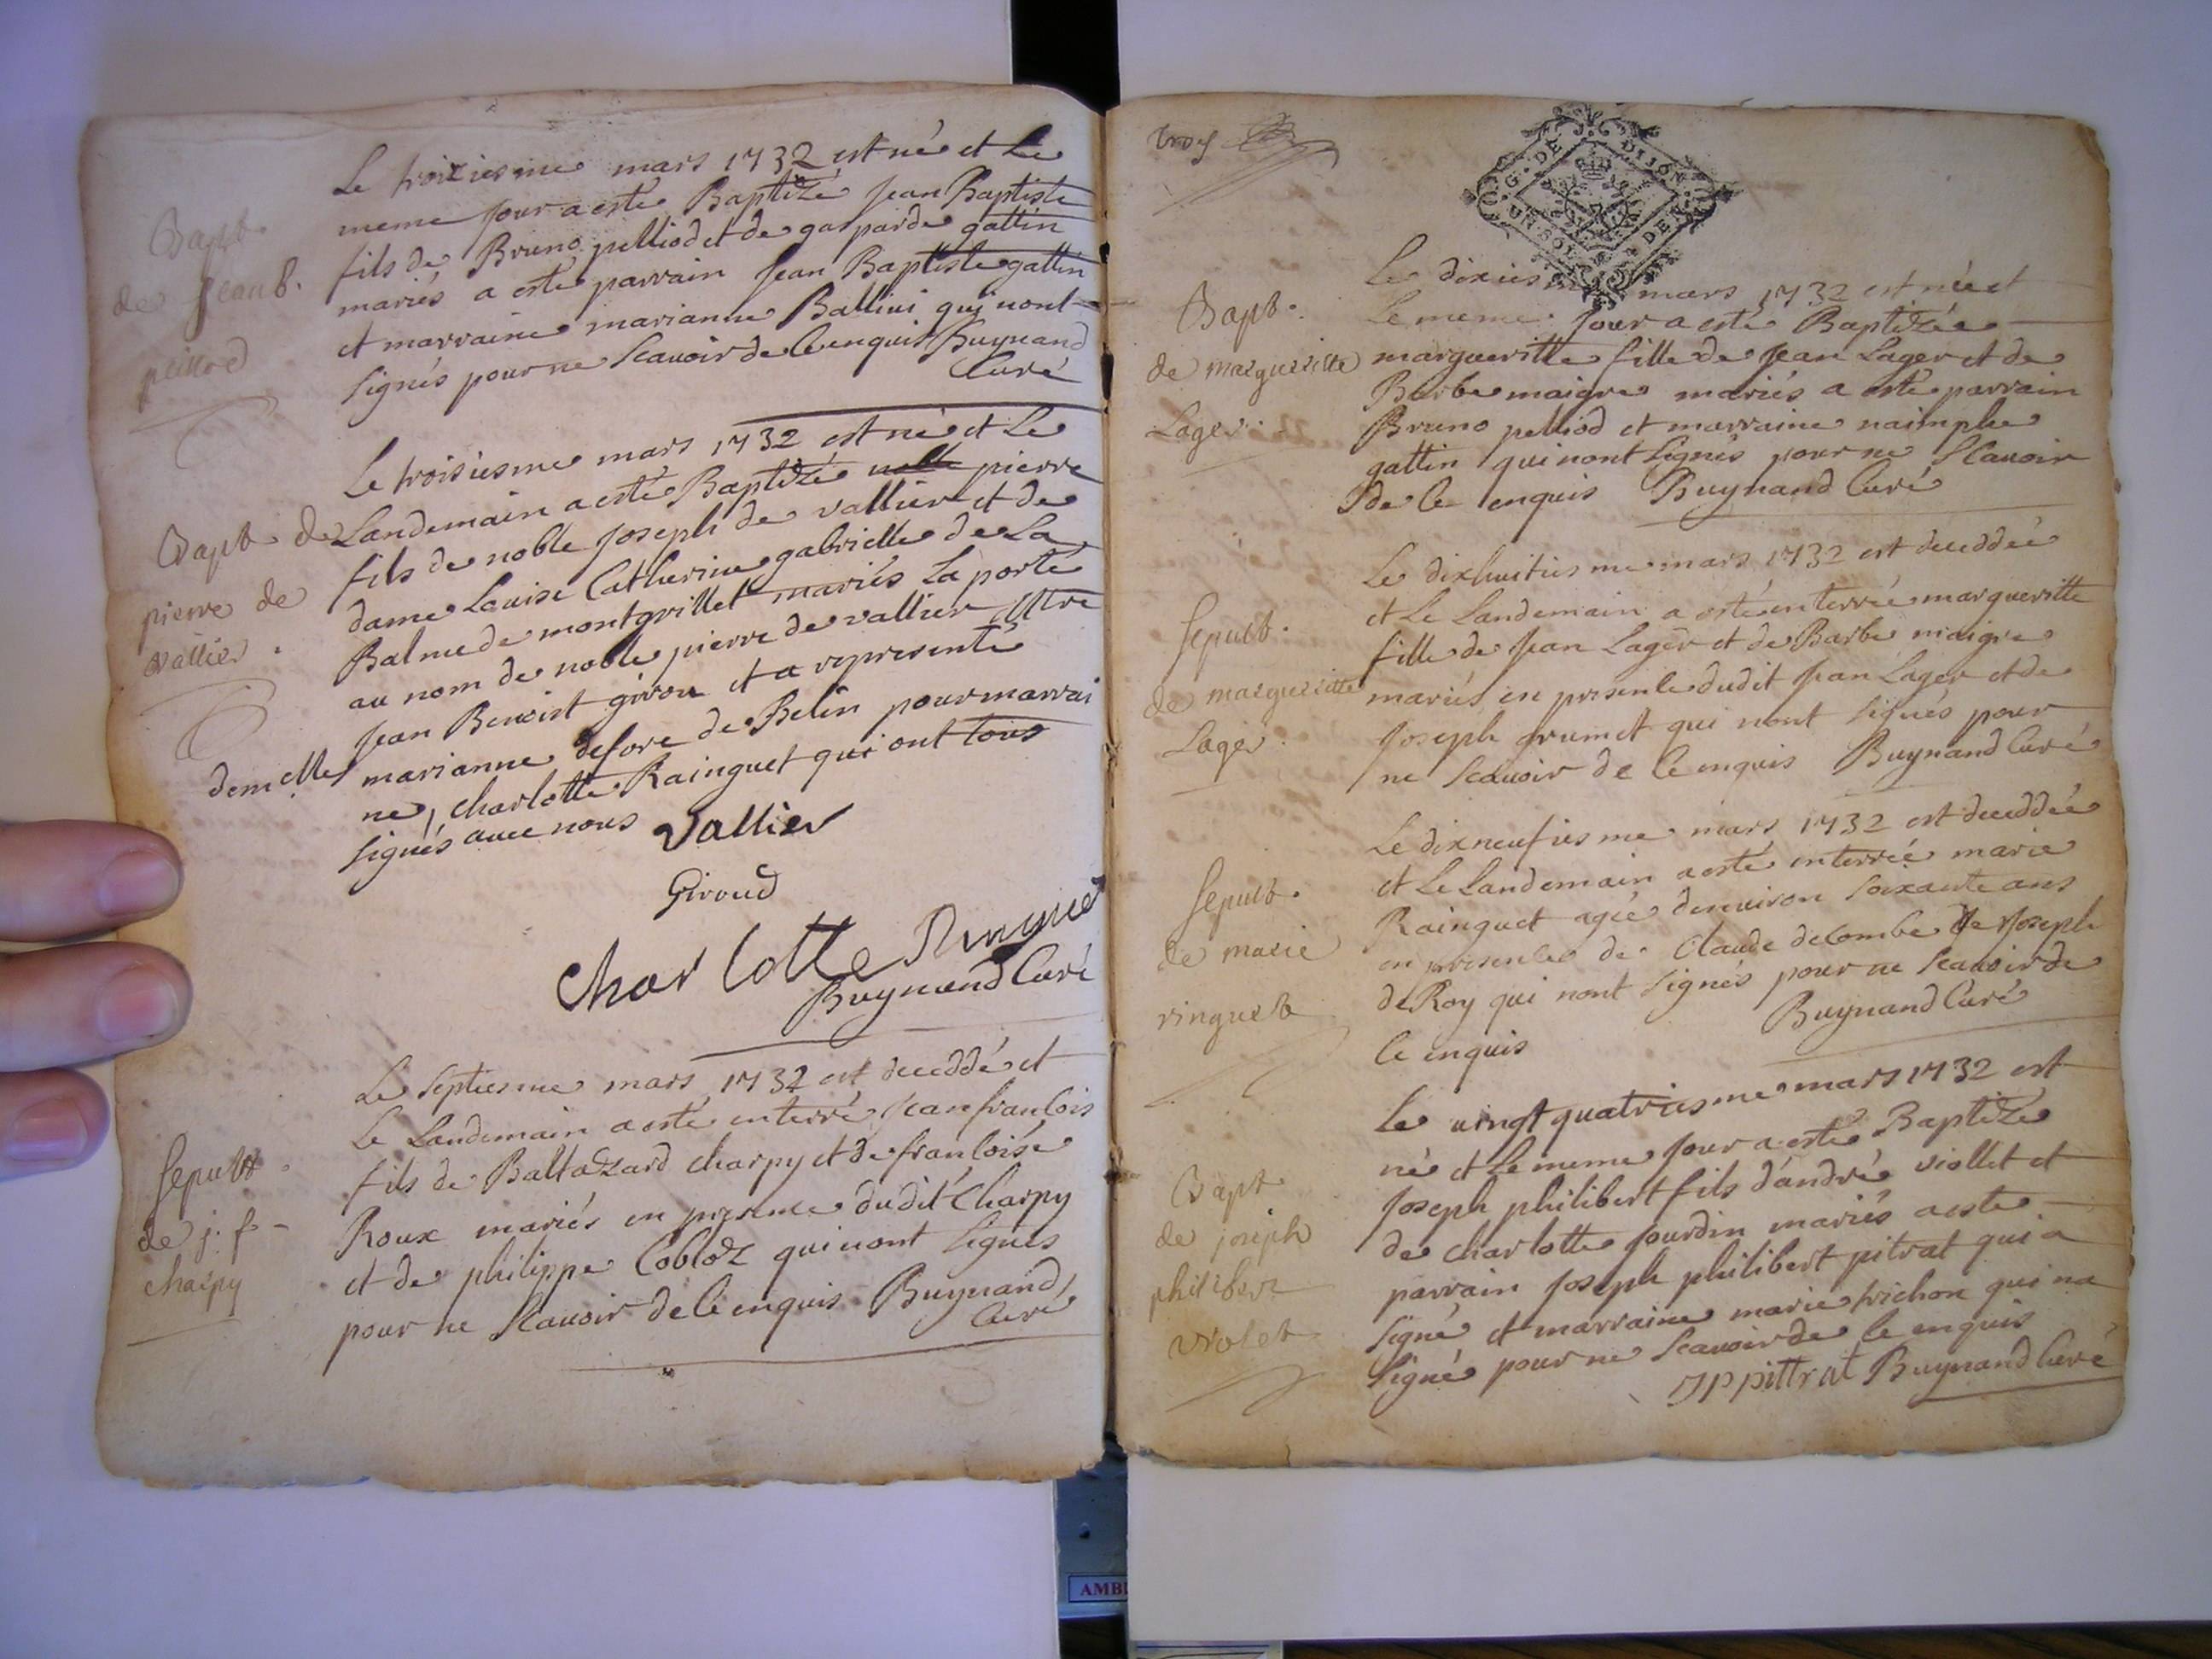 Le troixiesme mars 1732 est né et Le
meme jour a esté Baptizé Jean Baptiste
fils de Bruno pelliod et de gasparde gattin
mariés a esté parrain Jean Baptiste gattin
et marraine marianne Ballini qui nont
signés pour ne scavoir de ce enquis Buynand
Curé
Bapt.
de jean b.
peillod
Le troisiesme mars 1732 est né et Le
Landemain a esté Baptizé noble pierre
fils de noble Joseph de vallier et de
dame Louise Catherine gabrielle de La
Balme de montgrillet mariés La porté
au nom de noble pierre de vallier
Jean Benoist girou et a representé
demelle marianne de Belin pour marrai
ne, charlotte Rainguet qui ont tous
signés avec nous Vallier
Bapt de
pierre de
vallier.
Giroud
Charlotte Ringuet
Buynand Curé
Le septiesme mars 1732 est deceddé et
Le Landemain a esté enterré jean francois
fils de Baltazard charpy et de francoise
Roux mariés en presence dudit Charpy
et de philippe Cobloz qui nont signés
pour ne scavoir de ce enquis Buynand
Curé
Sepult.
de j. f -
charpy
trois
G. DE DIJON
UN SOL DE
Le dixies mars 1732 est née et
Le meme jour a esté Baptizée
margueritte fille de jean Lager et de
Barbe maigre mariés a esté parrain
Bruno pelliod et marraine naimphe
gattin qui nont signés pour ne scavoir
de ce enquis Buynand Curé
Bapt.
de margueritte
Lager.
Le dixhuitiesme mars 1732 est deceddée
et Le Landemain a esté enterrée margueritte
fille de jean Lager et de Barbe maigre
mariés en presence dudit jean Lager et de
Joseph grumet qui nont signés pour
ne scavoir de ce enquis Buynand Curé
Sepult.
de margueritte
Lager.
Le dixneufiesme mars 1732 est deceddée
et Le Landemain a esté enterrée marie
Rainguet agée denviron soixante ans
en presence de Claude decombe de Joseph
de Roy qui nont signés pour ne scavoir de
ce enquis Buynand Curé
Sepult.
de marie
ringuet
Le vingt quatriesme mars 1732 est
né et Le meme jour a esté Baptizé
Joseph philibert fils d'andré viollet et
de charlotte jourdin mariés a esté
parrain Joseph philibert pitrat qui a
signé et marraine marie trichon qui na
signé pour ne scavoir de ce enquis
JP pittrat Buynand Curé
Bapt
de joseph
philibert
violet
AMB